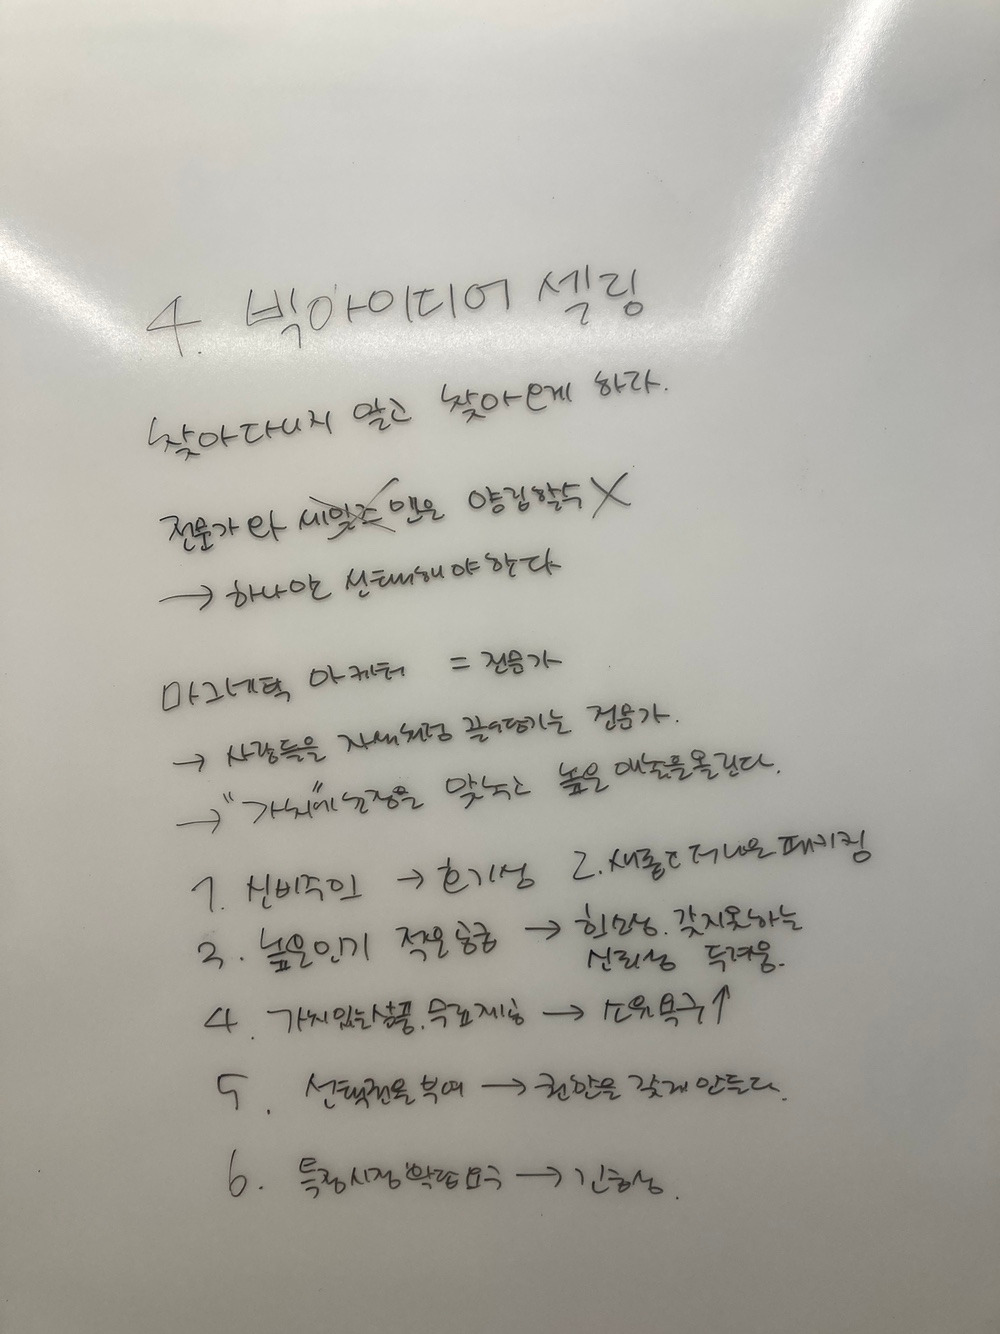 4. 빅아이디어 셀링
찾아다니지 말고 찾아오게 하라.
전문가와 세일즈맨은 양립할수 X
→ 하나만 선택해야 한다
마그네틱 마케터 = 전문가
→ 사람들을 자석처럼 끌어당기는 전문가.
→ "가치"에 초점을 맞추고 높은 매출을 올린다.
1. 신비주의 → 호기심 2. 새롭고 더 나은 패키징
3. 높은인기 적은공급 → 희소성. 갖지못하는
신뢰성 두려움.
4. 가치있는상품, 무료제공 → 소유욕구↑
5. 선택권을 부여 → 권한을 갖게 만든다.
6. 특정시장 → 긴급성.